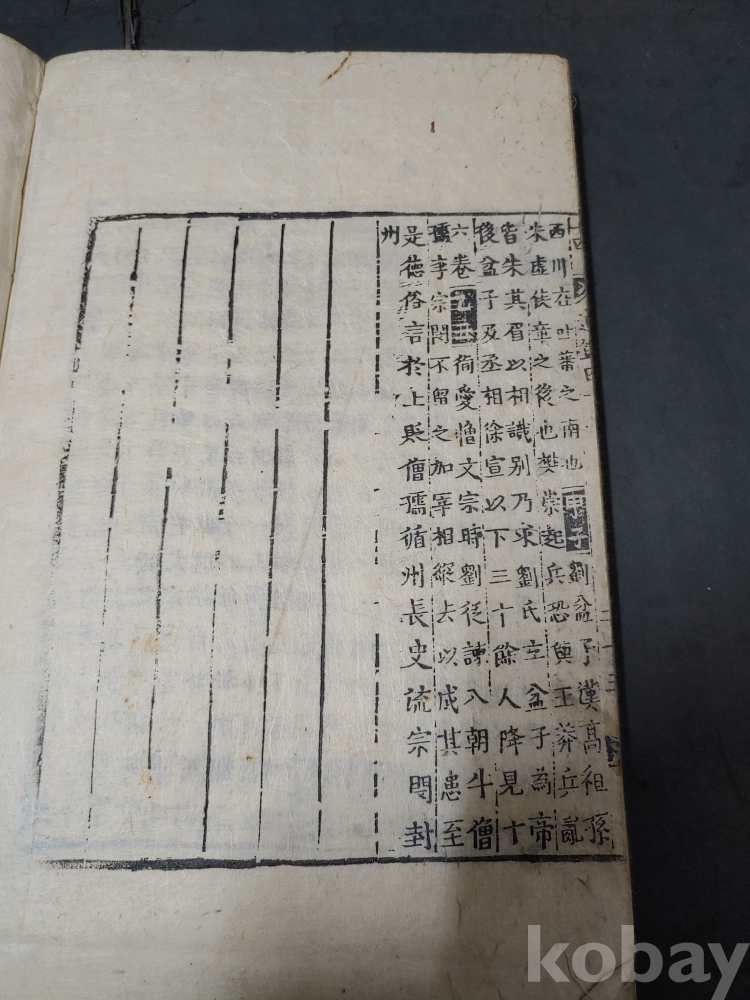 西川在吐蕃之南也甲子劉盆子漢高祖孫
朱虛侯章之後也樊崇起兵恐與王莽兵亂
皆朱其眉以相識別乃求劉氏立盆子為帝
後盆子及丞相徐宣以下三十餘人降見十
六卷 倚愛憎文宗時劉從諫入朝牛僧
孺李宗閔不留之加宰相縱去以成其患至
是德裕言於上貶僧孺循州長史流宗閔封
州
kobay